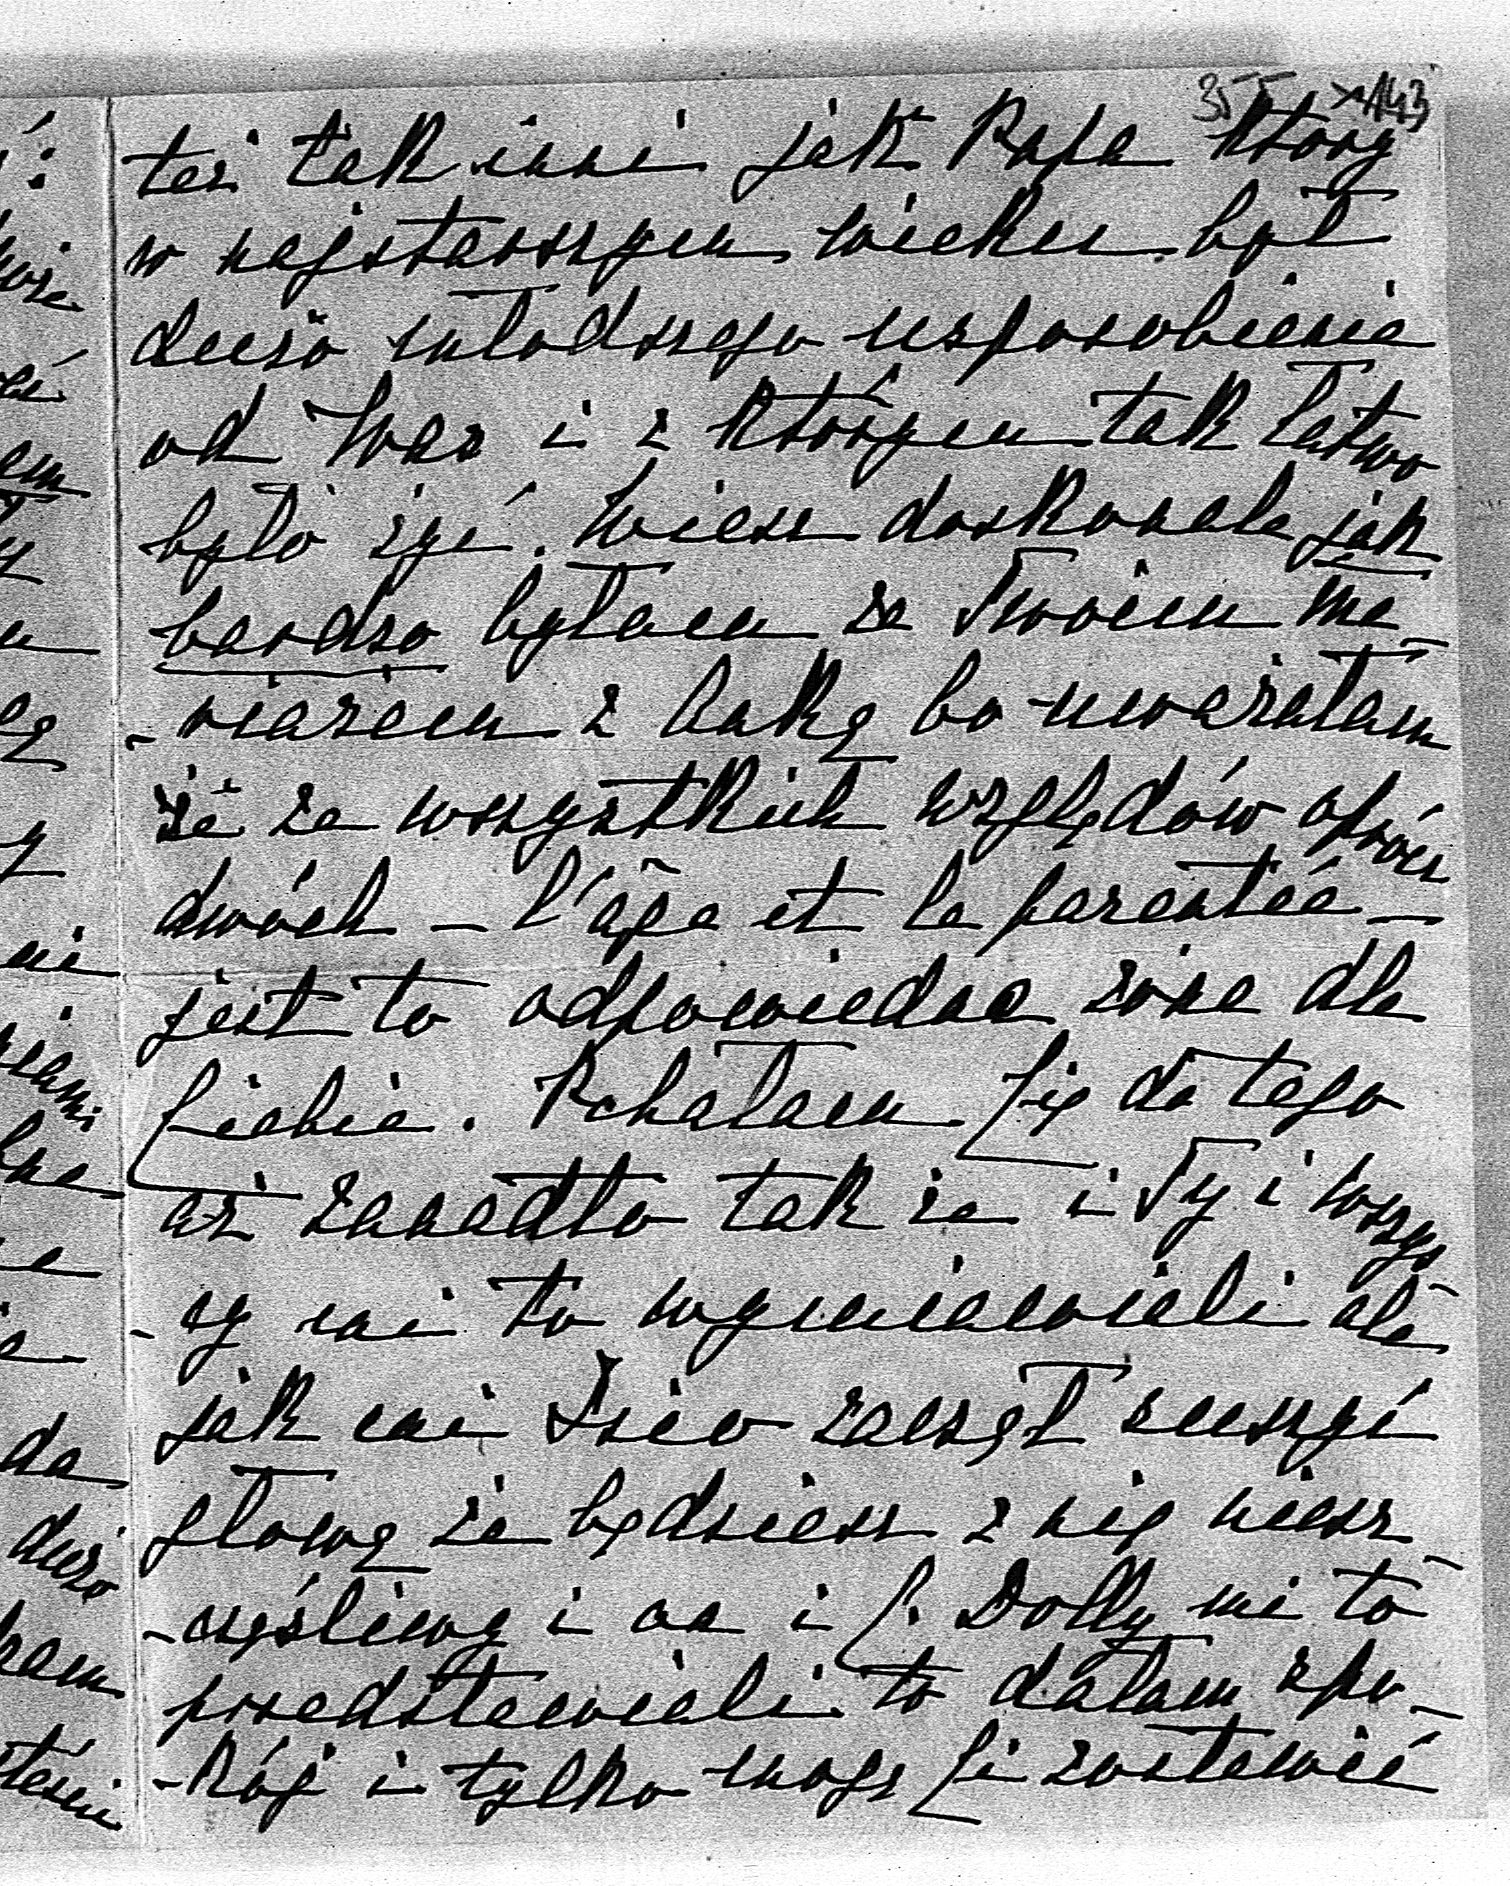 355 143
też tak inni jak Papa który
w najstarszym wieku był
dużo młodszego usposobienia
od Was i z którym tak łatwo
było żyć. Wiesz doskonale jak
bardzo byłam za Twoim ma-
-riażem z Kakę bo uważałam
że ze wszystkich względów oprócz
dwóch — l'âge et la parenté —
jest to odpowiednia żona dla
Ciebie. Pchałam Cię do tego
aż zanadto tak że i Ty i wszys-
-cy mi to wymawiali ale
jak mi Isio zaczął suszyć
głowę że będziesz z nią niesz-
-częśliwy i on i C. Dolly mi to
przedstawiali to dałam spo-
-kój i tylko mogę Ci zostawić